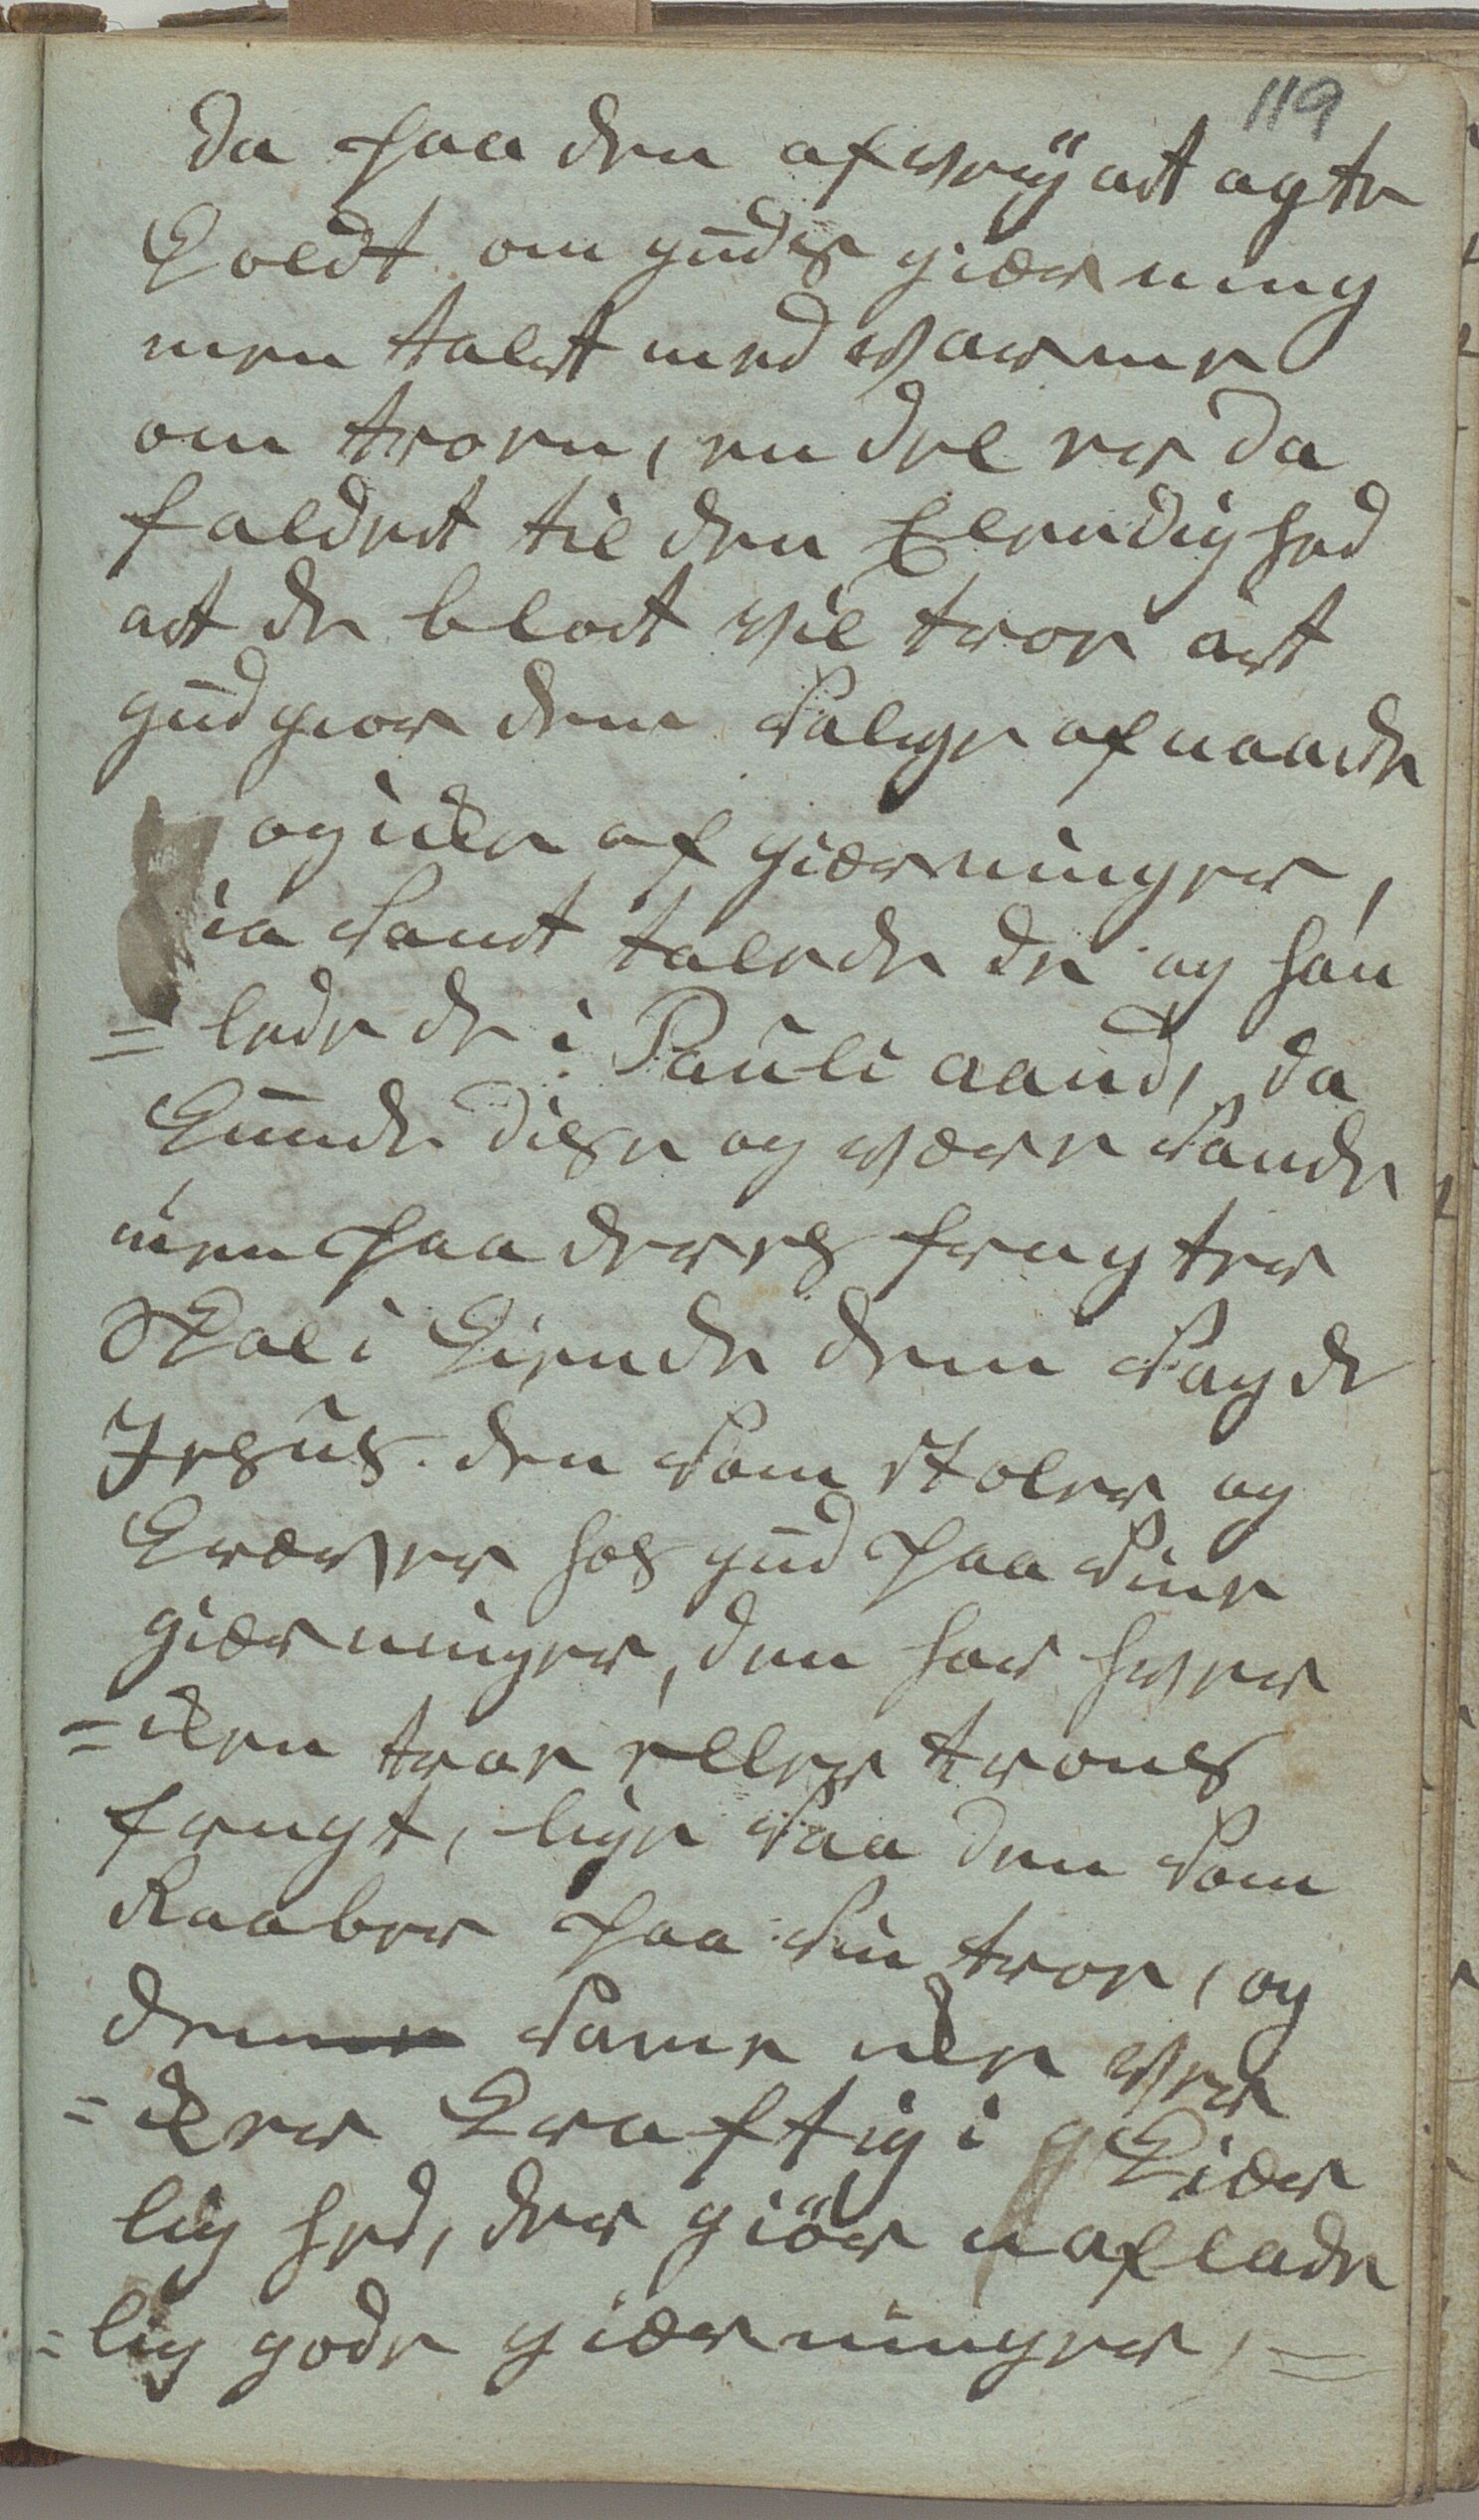 119
da paa den afvey at agte
Koldt om guds giærning
men talet med varme
om troen, en del er da
faldet til den Elendighed
at de blot vil troe at
gud gior dem salige af naade
og icke af giærninger,
ia sandt talede de og han
= lede de i Pauli aand, da
kunde disse og være sande
men paa deres frugter
skal i kiende dem sagde
Jesus. den som stoler og
kræver hos gud paa sine
giærninger, den har hver
= cken troe eller troens
frugt, lige saa den som
Raaber paa sin troe, og
denne same icke ver
= cker kraftig i kiær
lig hed, der giör uaflade
= lig gode giærninger, =